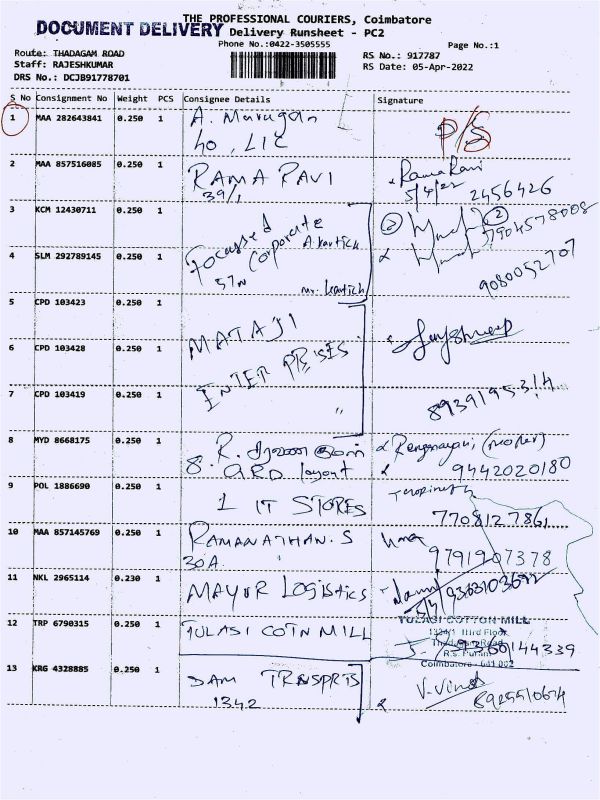 THE PROFESSIONAL COURIERS, Coimbatore
DOCUMENT DELIVERY
Delivery Runsheet - PC2
Phone No.:0422-3505555
Page No.:1
Route: THADAGAM ROAD
RS No.: 917787
Staff: RAJESHKUMAR
RS Date: 05-Apr-2022
DRS No.: DCJB91778701
S No Consignment No Weight PCS Consignee Details Signature
1 MAA 282643841 0.250 1 A. Murugan
LIC
P/S
2 MAA 857516085 0.250 1 RAMA RAVI
39/1
Rama Ravi
5/4/22 2456426
3 KCM 12430711 0.250 1 Focussed Corporate
A. Kartick
2
4 SLM 292789145 0.250 1
57
Mr. Kartick
9080052707
5 CPD 103423 0.250 1 MATAJI
6 CPD 103428 0.250 1 ENTER PRISES
7 CPD 103419 0.250 1 "
8939195314
8 MYD 8668175 0.250 1 R.
8. GRD layout
9442020180
9 POL 1886690 0.250 1 1 IT STORES
7708127861
10 MAA 857145769 0.250 1 RAMANATHAN. S
30A
Uma
9791907378
11 NKL 2965114 0.230 1 MAYUR LOGISTICS
12 TRP 6790315 0.250 1 TULASI COTN MILL
TULASI COTTON MILL
Third Floor
Road
R.S. Puram
Coimbatore - 641 002
13 KRG 4328885 0.250 1 DAM TRNSPRTS
1342